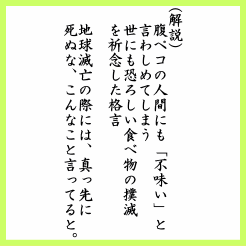 (解説)
腹ペコの人間にも「不味い」と
言わしめてしまう
世にも恐ろしい食べ物の撲滅
を祈念した格言
地球滅亡の際には、真っ先に
死ぬな、こんなこと言ってると。